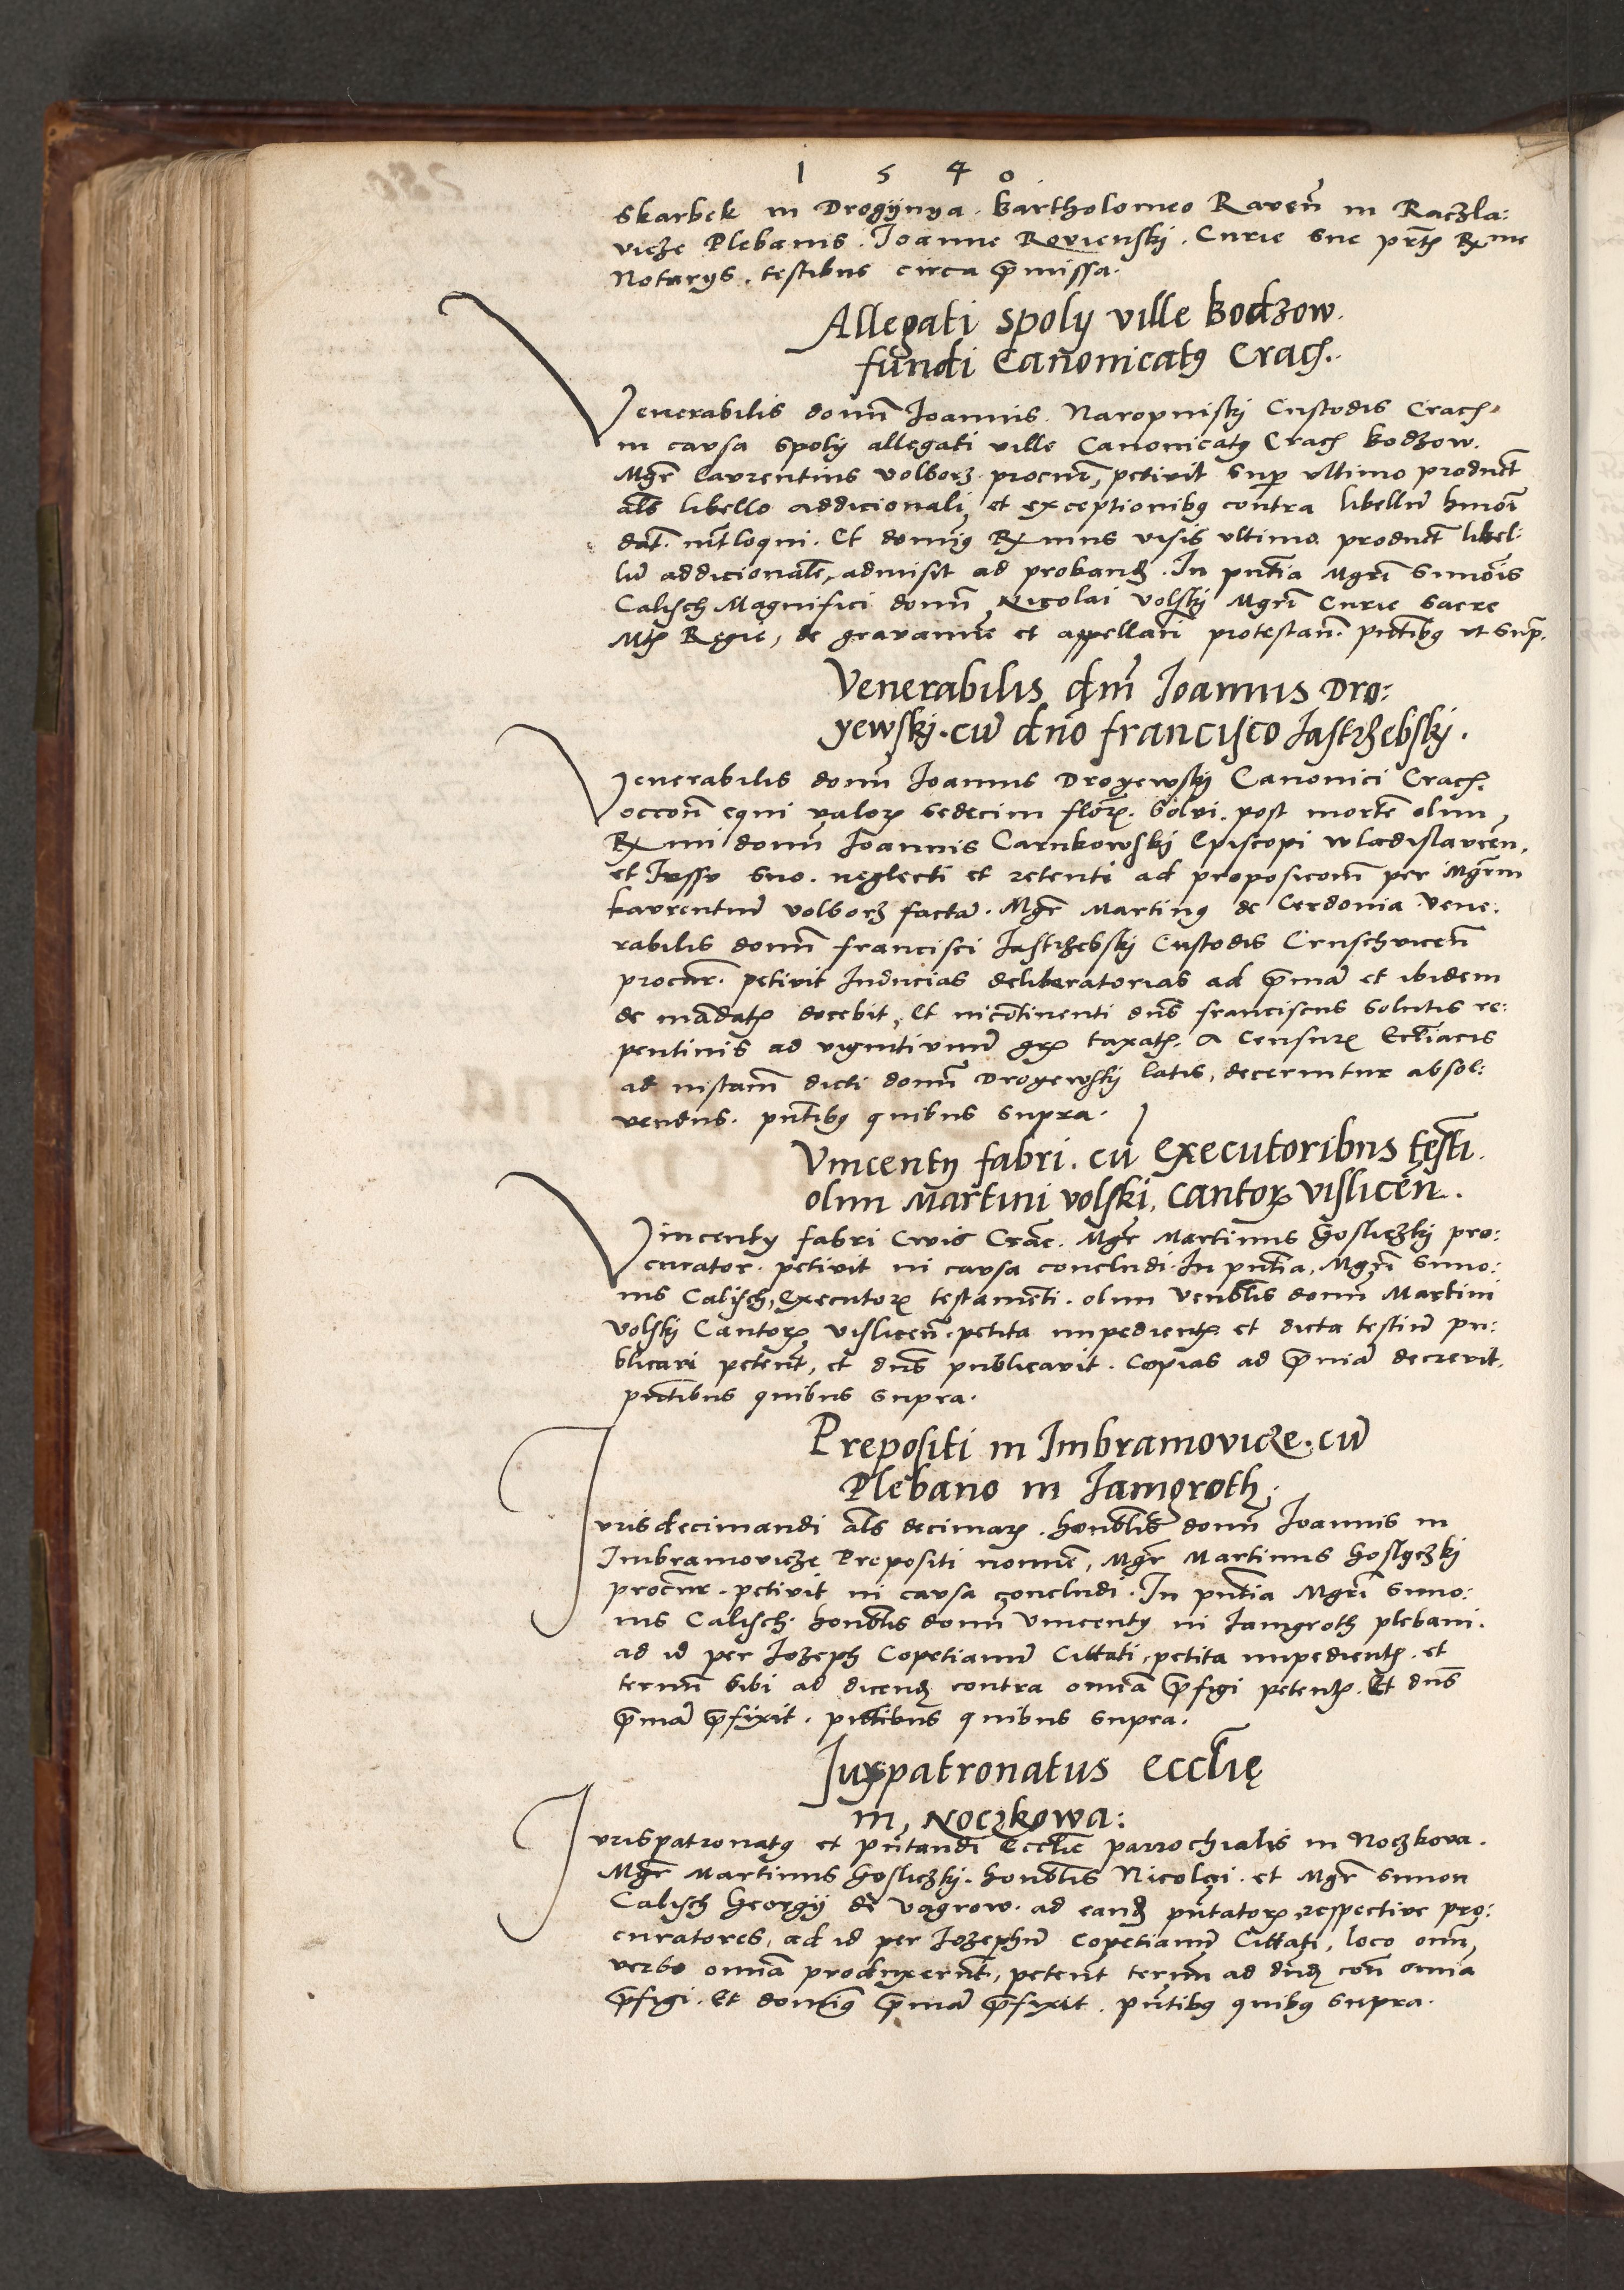 1 5 4 0
Skarbek in Drogijnya. Bartholomeo Raveñ in Raczla:
vicze Plebanis. Joanne Rovienskj. Curie sue prtꝫ Rx̃me
Notarijs. testibus circa p̃missa.
Allegati spolij ville Bodzow.
fundi Canonicatꝰ Cracħ.
Venerabilis domñ Joannis Naropinskj Custodis Cracħ
in causa spolij allegati ville Canonicatꝰ Cracħ Bodzow.
Mgr̃ Laurentius volborz procur̃, petivit sup̃ ultimo product
als̃ libello addicionali, et exceptionibꝰ contra libellũ hmõi
dat̃. int̃loqui. Et domiꝰ Rx̃mus visis ultimo product̃ libel:
lũ addicionalẽ, admisit ad proband̃. In pñtia Mgri Simõis
Calisch Magnifici domñ Nicolai Volskj Mgri Curie Sacre
Mtꝫ Regie, de gravamĩe et appellari protestan̄. pñtibꝰ ut sup̃.
Venerabilis dm̃ Joannis Dro:
yewskj. cũ dño francisco Jastrzebskj.
Venerabilis domñ Joannis Drogewskj Canonici Cracħ.
occoñ equi valorꝫ sedecim florꝫ. solvi. post mortẽ olim,
Rx̃mi domñ Joannis Carnkowskj Episcopi wladislavieñ.
et Jussu suo. neglecti et retenti ad proposicom̃ per Mgrm̃
Laurentiũ volborz factã. Mgr̃ Martinꝰ de Cerdonia Vene:
rabilis domñ francisci Jastrzebskj Custodis Cruschvicen̄
procur̃. petivit Inducias deliberatorias ad p̃mã et ibidem
de mãdatꝫ docebit, Et incõtinenti dñs franciscus solutis re:
pentinis ad vigintiunũ grꝫ taxatꝫ. A Censurꝫ Ecctiacis
ad instam̃ dicti domñ Drogewskj latis, decernitur absol:
vendus. pñtibꝰ quibus supra.
Vincentij fabri. cũ Executoribus testi.
olim Martini volskj, Cantorꝫ visliceñ.
Vincentij fabri Civis Crac̃. Mgr̃ Martinus Gosliczkj pro:
curator. petivit in causa concludi. In pñtia. Mgri Simo:
nis Calisch, Executorꝫ testamẽti. olim Venblis domñ Martini
Volskj Cantorꝫ visliceñ. petita impedientꝫ et dicta testiũ pu:
blicari petent̃, et dñs publicavit. Copias ad p̃miã decrevit.
pñtibus quibus supra.
Prepositi in Imbramovicze. cũ
Plebano in Jamgroth.
Juris decimandi als̃ decimarꝫ. honblis domñ Joannis in
Imbramovicze Prepositi nomĩe, Mgr̃ Martinus Goslyczkj
procur̃. petivit in causa concludi. In pñtia Mgri Simo:
nis Calisch. honblis domñ Vincentij in Jamgroth plebani.
ad id per Jozeph Copetianũ Cittati, petita impedientꝫ. et
termñ sibi ad dicend̃ contra omĩa p̃figi petentꝫ. Et dñs
p̃mã p̃fixit. pñtibus quibus supra.
Juspatronatus Ecclię
in, Noczkowa:
Jurispatronatꝰ et pñtandi Ecclie parrochialis in Noczkova.
Mgr̃ Martinus Gosliczkj. honblis Nicolai. et Mgr̃ Simon
Calisch Georgij de Vagrow. ad eand̃ pñtatorꝫ respective pro:
curatores, ad id per Jozephũ Copetianũ Cittati, loco omñ,
verbo omĩa produxerũt, petent termñ ad dnd̃ con̄ omia
p̃figi. Et domiꝰ p̃mã p̃fixit. pñtibꝰ quibꝰ supra.